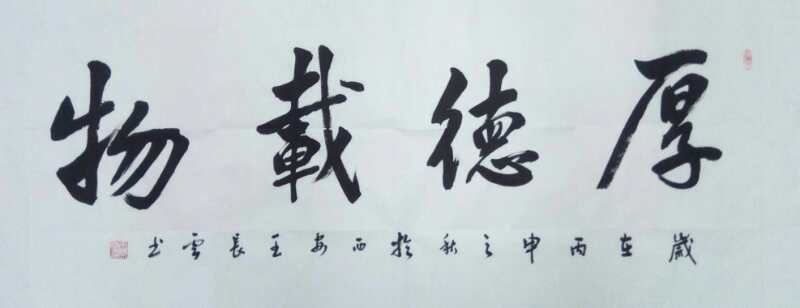 厚德載物
歲在丙申之秋於西安王長雲书